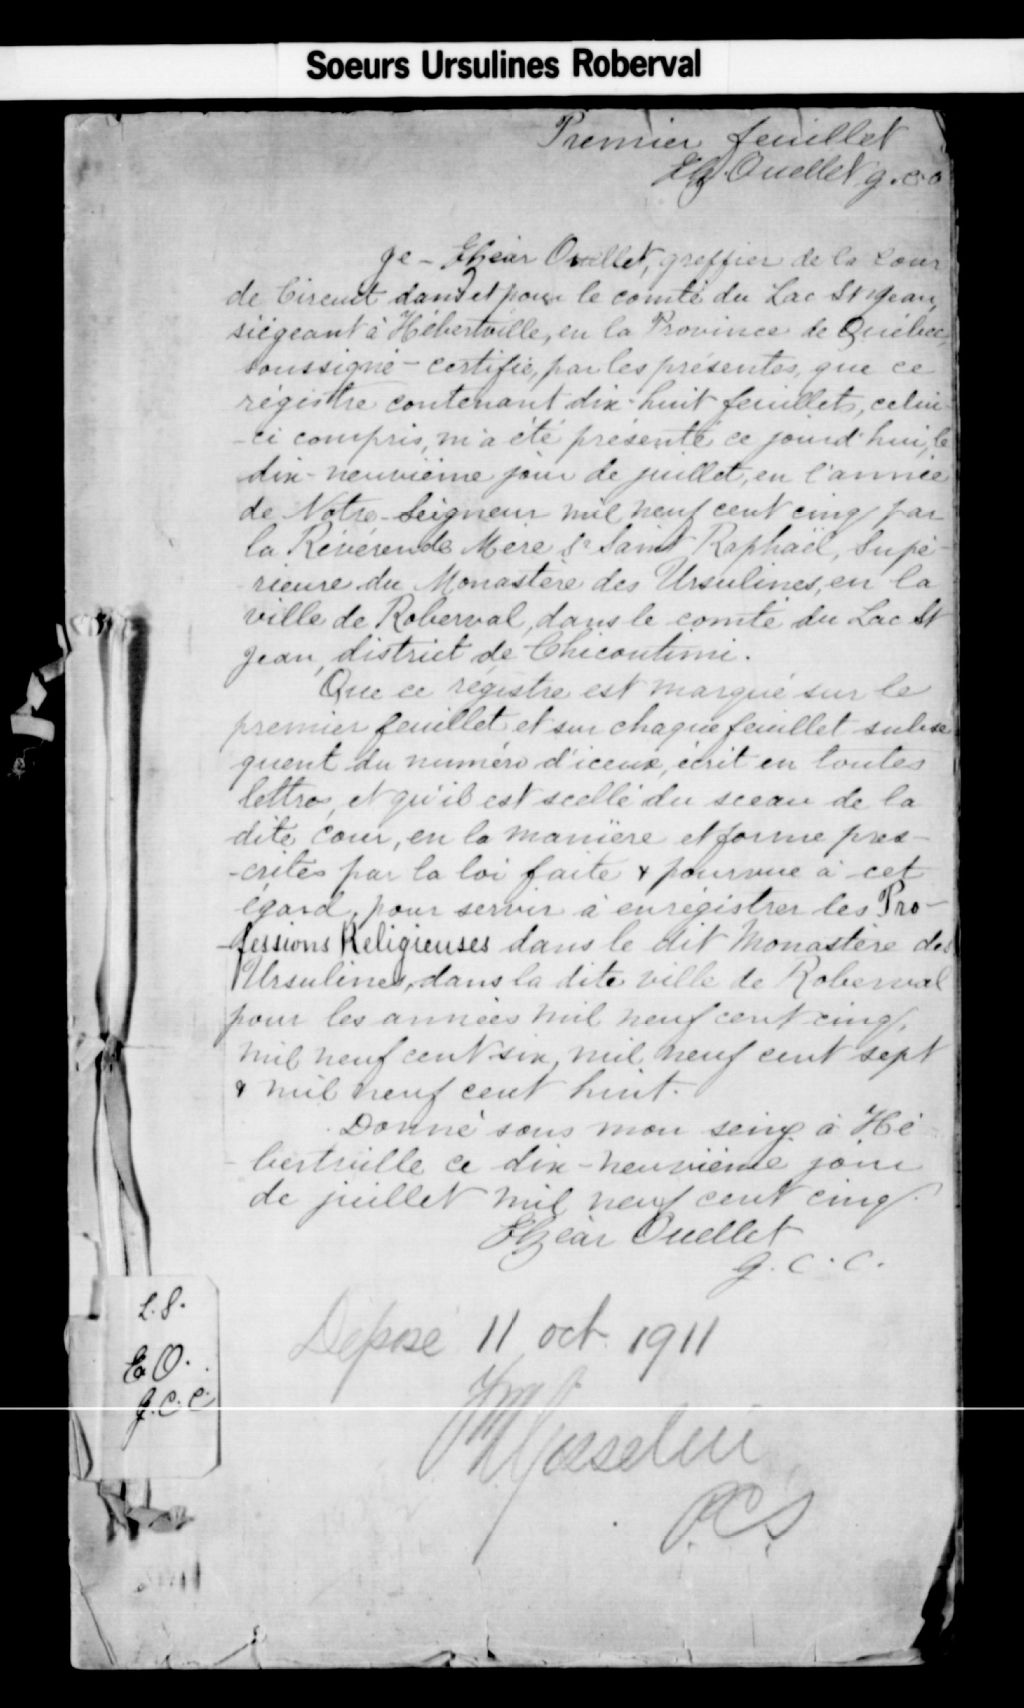 Soeurs Ursulines Roberval
Premier feuillet
Elz. Ouellet g.c.c
Je - Elzéar Ouellet, greffier de la Cour
de Circuit dans et pour le comté du Lac St Jean,
siégeant à Hébertville, en la Province de Québec,
soussigné - certifie, par les présentes, que ce
régistre contenant dix-huit feuillets, celui-
-ci compris, m'a été présenté ce jourd'hui, le
dix-neuvième jour de juillet, en l'année
de Notre-Seigneur mil neuf cent cinq par
la Révérende Mère Se Saint Raphaël, Supé-
rieure du Monastère des Ursulines, en la
ville de Roberval, dans le comté du Lac St
Jean, district de Chicoutimi.
Que ce régistre est marqué sur le
premier feuillet et sur chaque feuillet subsé
quent du numéro d'iceux, écrit en toutes
lettres, et qu'il est scellé du sceau de la
dite cour, en la manière et forme pres-
-crites par la loi faite & pourvue à cet
égard, pour servir à enrégistrer les Pro-
-fessions Religieuses dans le dit Monastère des
Ursulines, dans la dite ville de Roberval
pour les années mil neuf cent cinq,
mil neuf cent six, mil neuf cent sept
& mil neuf cent huit.
Donné sous mon seing à Hé
bertville ce dix-neuvième jour
de juillet mil neuf cent cinq.
Elzéar Ouellet
g.c.c.
L.S.
E.O.
g.c.c
Déposé 11 oct. 1911
P.C.S.